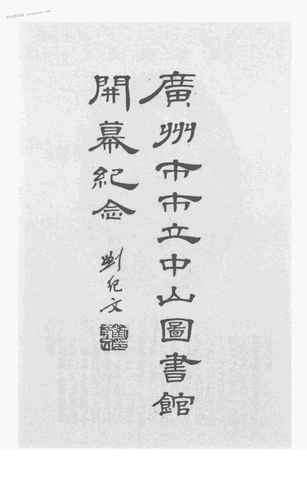 廣州市市立中山圖書館
開幕紀念
劉紀文